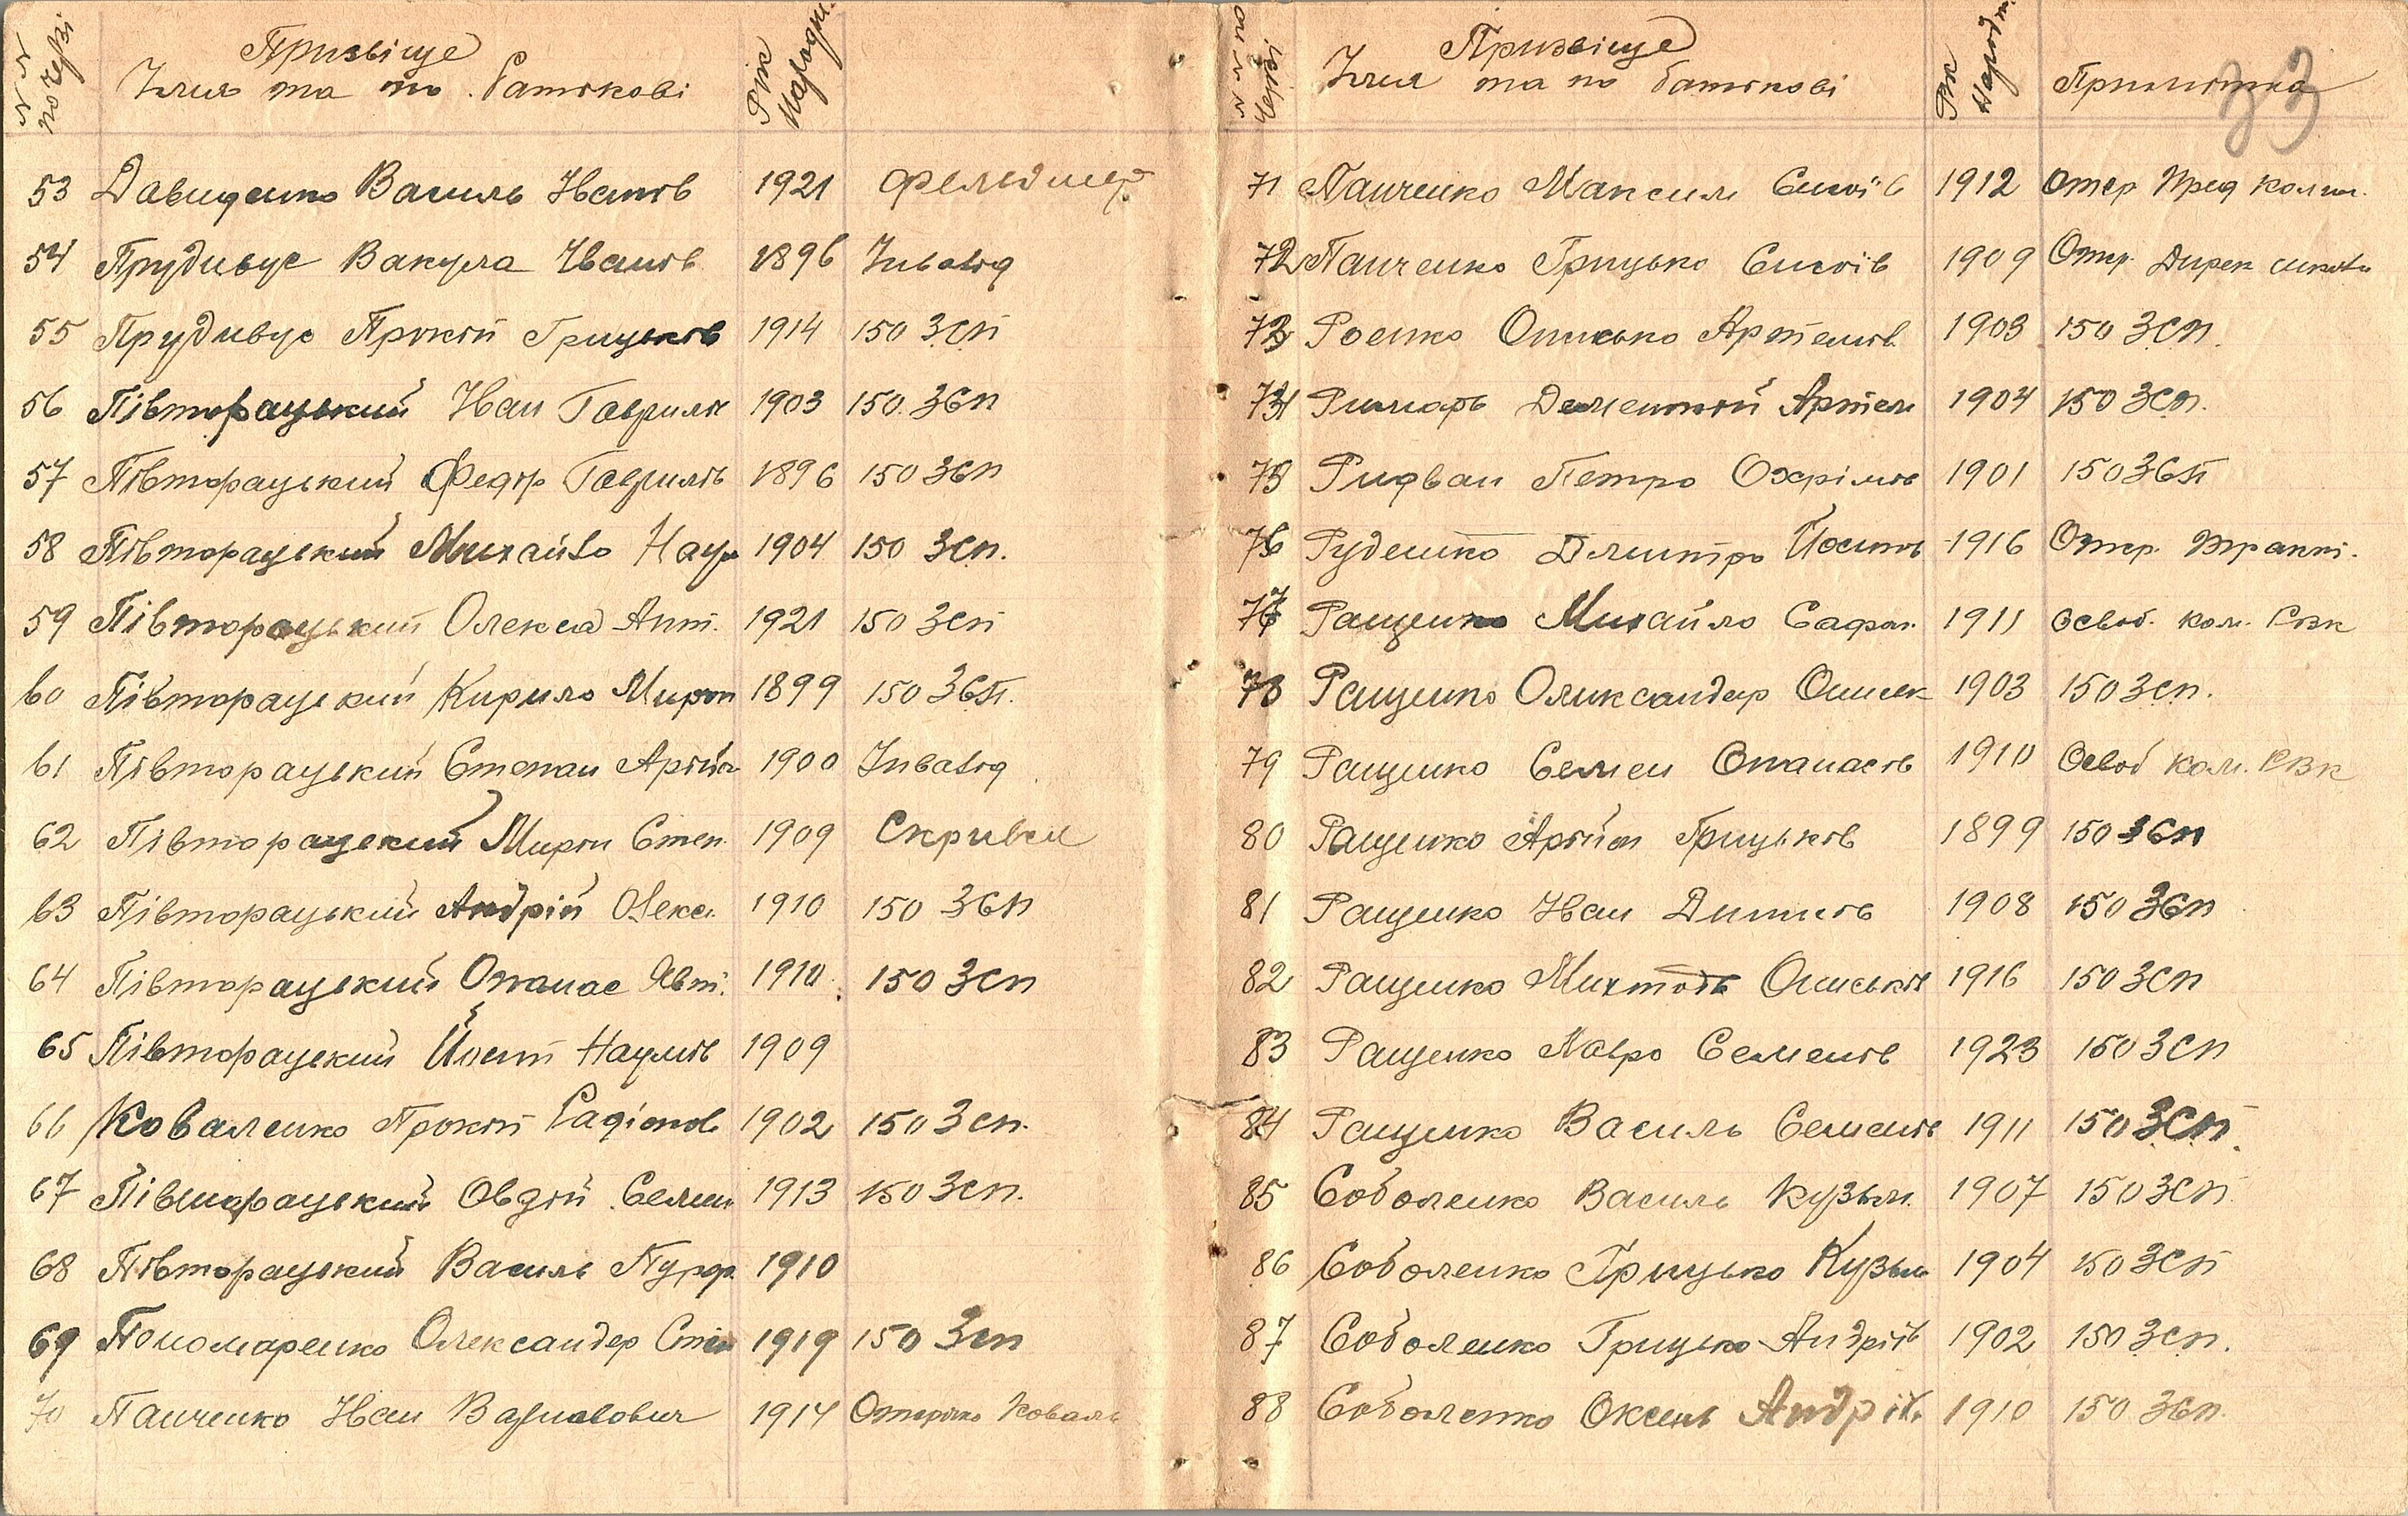 №№ по черзі Призвіще Імия та по батькові Рік народж.
53 Давиденко Василь Іванів 1921 фельдшер
54 Прудивус Вакула Іванів 1896 Інвалід
55 Прудивус Прокіп Грицьків 1914 150 ЗСП
56 Півторацький Іван Гаврилів 1903 150 ЗСП
57 Півторацький Федір Гаврилів 1896 150 ЗСП
58 Півторацький Михайло Наум 1904 150 ЗСП.
59 Півторацький Олекса Ант. 1921 150 ЗСП
60 Півторацький Кирило Мирон 1899 150 ЗСП.
61 Півторацький Степан 1900 Інвалід
62 Півторацький Мирон Степ. 1909
63 Півторацький Андрій Олекс. 1910 150 ЗСП
64 Півторацький Опанас Явт. 1910 150 ЗСП
65 Півторацький Йосип Наумів 1909
66 Коваленко Прокіп Радіонов 1902 150 ЗСП.
67 Півторацький Овдій Семен 1913 150 ЗСП.
68 Півторацький Василь 1910
69 Пономаренко Олександер Степ 1919 150 ЗСП
70 Панченко Іван 1914 Коваль
№№ по черзі Призвіще Імия та по батькові Рік Народж. Примітка
33
71 Панченко Максим Єисеїв 1912 Отер Пред колгм.
72 Панченко Грицько Єисеїв 1909 Отер. Дирек школи
73 Роенко Описько Артемів 1903 150 ЗСП.
74 Римарь Дементій Артем 1904 150 ЗСП.
75 Ридван Петро Охрімів 1901 150 ЗСП
76 Руденко Дмитро Йосипів 1916 Отер. тракт.
77 Ращенко Михайло Сафон. 1911 Освоб. ком. РВК
78 Ращенко Олександер Описьк 1903 150 ЗСП.
79 Ращенко Семен Опанасів 1910 Освоб ком. РВК
80 Ращенко Грицьків 1899 150 ЗСП
81 Ращенко Іван Дитисів 1908 150 ЗСП
82 Ращенко Михтодь Описьків 1916 150 ЗСП
83 Ращенко Павро Семенів 1923 150 ЗСП
84 Ращенко Василь Семенів 1911 150 ЗСП.
85 Соболенко Василь Кузьм. 1907 150 ЗСП.
86 Соболенко Грицько Кузьм 1904 150 ЗСП
87 Соболенко Грицько Андріїв 1902 150 ЗСП.
88 Соболенко Оксень Андріїв 1910 150 ЗСП.